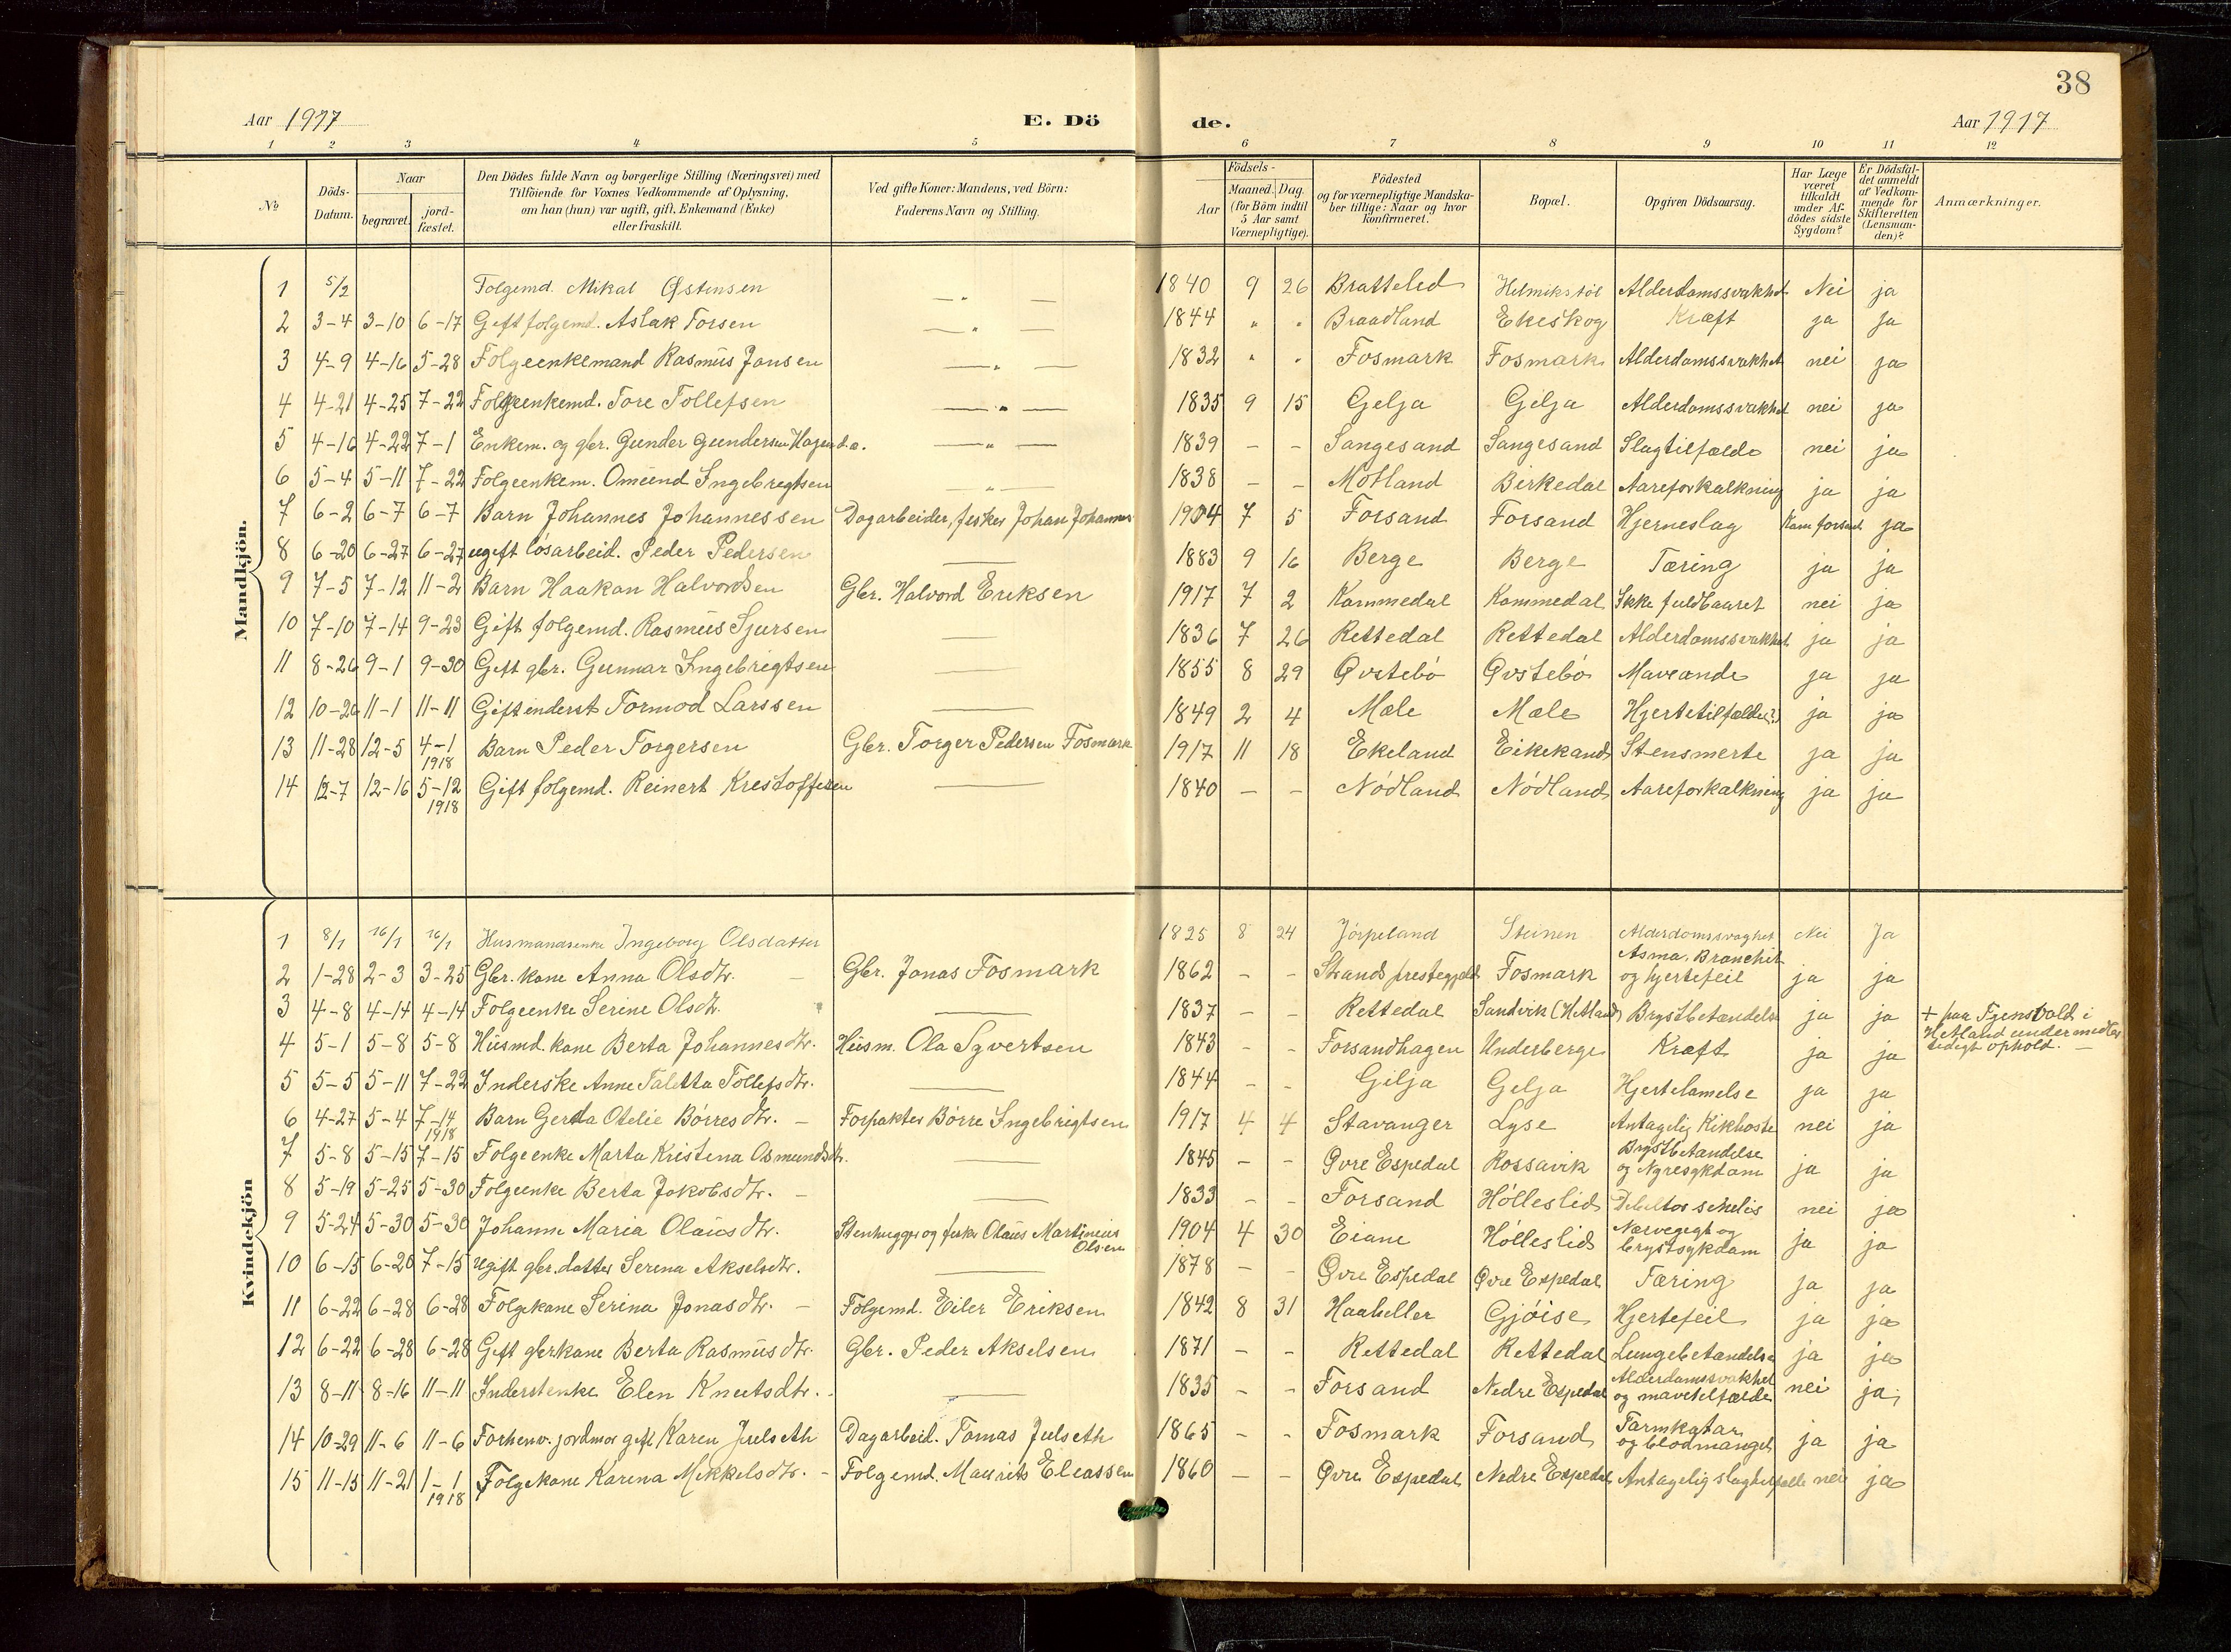 38
Aar 1917 E. Dö de. Aar 1917
1 2 3 4 5 6 7 8 9 10 11 12
No
Döds-Datum.
Naar
begravet.
jord-fæstet.
Den Dödes fulde Navn og borgerlige Stilling (Næringsvei) med
Tilföiende for Voxnes Vedkommende af Oplysning,
om han (hun) var ugift, gift, Enkemand (Enke)
eller fraskilt.
Ved gifte Koner: Mandens, ved Börn:
Faderens Navn og Stilling.
Födsels-
Aar
Maaned. Dag.
(for Börn indtil
5 Aar samt
Værnepligtige).
Födested
og for værnepligtige Mandska-
ber tillige: Naar og hvor
konfirmeret.
Bopæl.
Opgiven Dödsaarsag.
Har Læge
været
tilkaldt
under Af-
dödes sidste
Sygdom?
Er Dödsfal-
det anmeldt
af Vedkom-
mende for
Skifteretten
(Lensman-
den)?
Anmærkninger.
Mandkjön.
1 5/2 Folgemd. Mikal Østensen — " — 1840 9 26 Bratteled Helmikstøl Alderdomssvakhet Nei ja
2 3-4 3-10 6-17 Gift folgemd. Aslak Torsen — " — 1844 " " Braadland Ekeskog Kræft ja ja
3 4-9 4-16 5-28 Folgeenkemand Rasmus Jonsen — " — 1832 " " Fosmark Fosmark Alderdomssvakhet nei ja
4 4-21 4-25 7-22 Folgeenkemd. Tore Tollefsen — " — 1835 9 15 Gelja Gilja Alderdomssvakhet nei ja
5 4-16 4-22 7-1 Enkem. og gbr. Gunder Gundersen — " — 1839 - - Sangesand Sangesand Slagtilfælde nei ja
6 5-4 5-11 7-22 Folgeenkem. Omund Ingebregtsen — " — 1838 - - Motland Birkedal Aareforkalkning ja ja
7 6-2 6-7 6-7 Barn Johannes Johannessen Dagarbeider, fisker Johan Johannes 1904 7 5 Forsand Forsand Hjerneslag ja
8 6-20 6-27 6-27 ugift løsarbeid. Peder Pedersen — 1883 9 16 Berge Berge Tæring ja ja
9 7-5 7-12 11-2 Barn Haakon Halvordsen Gbr. Halvord Eriksen 1917 7 2 Kommedal Kommedal Ikke fuldbaaret nei ja
10 7-10 7-14 9-23 Gift folgemd. Rasmus Sjursen — 1836 7 26 Rettedal Rettedal Alderdomssvakhet ja ja
11 8-26 9-1 9-30 Gift gbr. Gunnar Ingebrigtsen — 1855 8 29 Øvstebø Øvstebø Maveonde ja ja
12 10-26 11-1 11-11 Gift inderst Tormod Larssen — 1849 2 4 Mæle Mæle Hjertetilfælde(?) ja ja
13 11-28 12-5 4-1 1918 Barn Peder Torgersen Gbr. Torger Pedersen Fosmark 1917 11 18 Ekeland Eikeland Stensmerte ja ja
14 12-7 12-16 5-12 1918 Gift folgemd. Reinert Kristoffersen — 1840 - - Nødland Nødland Aareforkalkning ja ja
Kvindekjön
1 8/1 16/1 16/1 Husmandsenke Ingeborg Olsdatter 1825 8 24 Jørpeland Steinen Alderdomssvaghet Nei Ja
2 1-28 2-3 3-25 Gbr. kone Anna Olsdtr. — Gbr. Jonas Fosmark 1862 - - Strands prestegjeld Fosmark Asma, Bronchit og hjertefeil ja ja
3 4-8 4-14 4-14 Folgeenke Serine Olsdtr. — 1837 - - Rettedal Sandvik (Hetland) Brystbetændelse ja ja + paa Tjensvold i
Hetland under midler
tidigt ophold. —
4 5-1 5-8 5-8 Husmd. kone Berta Johannesdtr. Husm. Ola Syvertsen 1843 - - Forsandhagen Underberge Kræft ja ja
5 5-5 5-11 7-22 Inderske Anne Taletta Tollefsdtr. — 1844 - - Gilja Gelja Hjertelamelse ja ja
6 4-27 5-4 7-14 1918 Barn Gerda Otelie Børresdtr. — Forpakter Børre Ingebrigtsen 1917 4 4 Stavanger Lyse Antagelig Kikhoste nei ja
7 5-8 5-15 7-15 Folgeenke Marta Kristina Osmundsdtr. — 1845 - - Øvre Espedal Rossavik Brystbetændelse og Nyresykdom ja ja
8 5-19 5-25 5-30 Folgeenke Berta Jakobsdtr. — 1833 - - Forsand Hølleslid nei ja
9 5-24 5-30 5-30 Johanne Maria Olausdtr. Stenhugger og fisker Olaus Martinius Olsen 1904 4 30 Eiane Hølleslid Nervegegt og brystsykdom ja ja
10 6-15 6-20 7-15 Ugift gbr.datter Serena Akselsdtr. — 1878 - - Øvre Espedal Øvre Espedal Tæring ja ja
11 6-22 6-28 6-28 Folgekone Serina Jonasdtr. — Folgemd. Eiler Eriksen 1842 8 31 Haaheller Gjøise Hjertefeil ja ja
12 6-22 6-28 6-28 Gift gbrkone Berta Rasmusdtr. Gbr. Peder Akselsen 1871 - - Rettedal Rettedal Lungebetændelse ja ja
13 8-11 8-16 11-11 Inderstenke Elen Knutsdtr. — 1835 - - Forsand Nedre Espedal Alderdomssvakhet og mavetilfælde nei ja
14 10-29 11-6 11-6 Forhenv. jordmor gift Karen Julseth Dagarbeid. Tomas Julseth 1865 - - Fosmark Forsand Tarmkatar og blodmangel ja ja
15 11-15 11-21 1-1 1918 Folgekone Karina Mikkelsdtr. — Folgemd. Maurits Eleassen 1860 - - Øvre Espedal Nedre Espedal Antagelig slagtilfælle nei ja